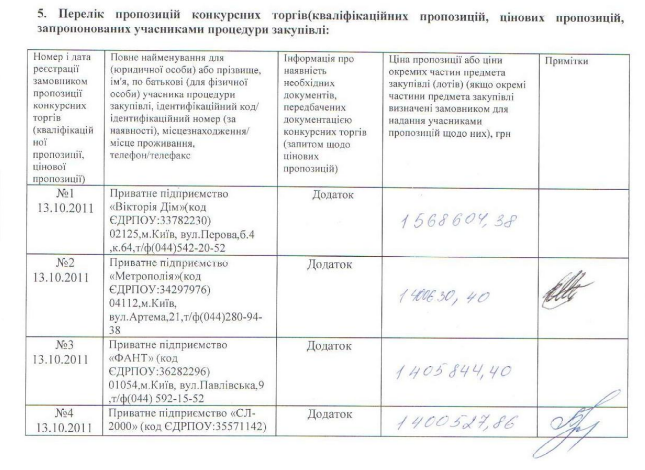 5. Перелік пропозицій конкурсних торгів(кваліфікаційних пропозицій, цінових пропозицій,
запропонованих учасниками процедури закупівлі:
Номер і дата
реєстрації
замовником
пропозиції
конкурсних
торгів
(кваліфікацій
ної
пропозиції,
цінової
пропозиції)
Повне найменування для
(юридичної особи) або прізвище,
ім'я, по батькові (для фізичної
особи) учасника процедури
закупівлі, ідентифікаційний код/
ідентифікаційний номер (за
наявності), місцезнаходження/
місце проживання,
телефон/телефакс
Інформація про
наявність
необхідних
документів,
передбачених
документацією
конкурсних торгів
(запитом щодо
цінових
пропозицій)
Ціна пропозиції або ціни
окремих частин предмета
закупівлі (лотів) (якщо окремі
частини предмета закупівлі
визначені замовником для
надання учасниками
пропозицій щодо них), грн
Примітки
№1
13.10.2011
Приватне підприємство
«Вікторія Дім»(код
ЄДРПОУ:33782230)
02125,м.Київ, вул.Перова,б.4
,к.64,т/ф(044)542-20-52
Додаток
1568604,38
№2
13.10.2011
Приватне підприємство
«Метрополія»(код
ЄДРПОУ:34297976)
04112,м.Київ,
вул.Артема,21,т/ф(044)280-94-
38
Додаток
№3
13.10.2011
Приватне підприємство
«ФАНТ» (код
ЄДРПОУ:36282296)
01054,м.Київ, вул.Павлівська,9
,т/ф(044) 592-15-52
Додаток
1405844,40
№4
13.10.2011
Приватне підприємство «СЛ-
2000» (код ЄДРПОУ:35571142)
Додаток
1400527,86